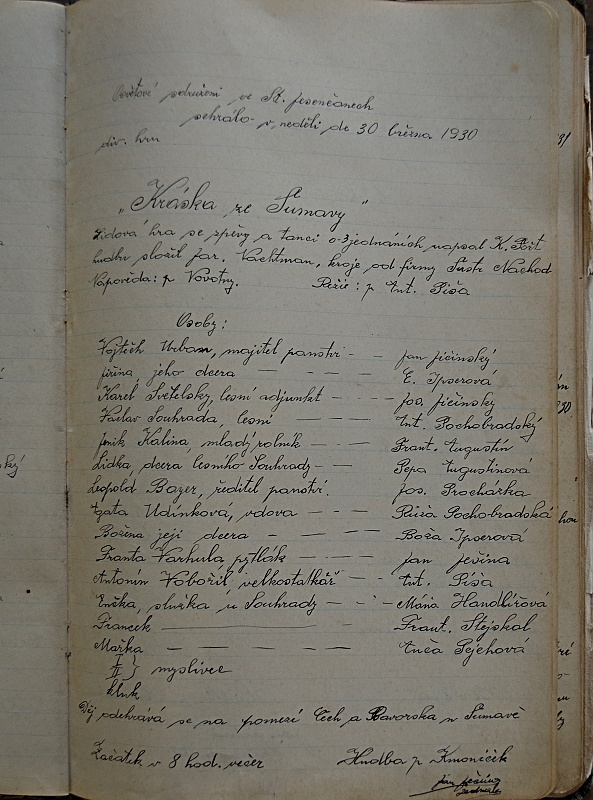 Osvětové sdružení ve St. Jesenčanech
sehrálo v neděli de 30 března 1930
div. hru
"Kráska ze Šumavy"
Lidová hra se zpěvy a tanci o 3 jednáních napsal K. Fořt
hudbu složil Jar. Vachtman, kroje od firmy Náchod
Nápověda: p Novotný. Režie: p Ant. Píša
Osoby:
Vojtěch Urban, majitel panství - - - Jan Jičínský
Jiřina jeho dcera - - - E. Ipserová
Karel Světelský, lesní adjunkt - - - Jos. Jičínský
Václav Souhrada, lesní - - - Ant. Pochobradský
Jeník Kalina, mladý rolník - - - Frant. Augustin
Lidka, dcera lesního Souhrady - - Pepa Augustinová
Leopold Bazer, ředitel panství. Jos. Procházka
Agáta Udínková, vdova - - - Růža Pochobradská
Božena její dcera - - - - Boža Ipserová
Franta Varhula pytlák - - - Jan Ječina
Antonín Vobořil velkostatkář - - Ant. Píša
Enčka, služka u Souhrady - - - Mána Handlířová
Francek Frant. Stejskal
Mařka - - - - - Anča Pejchová
I
II } myslivec
kluk
Děj odehrává se na pomezí Čech a Bavorska v Šumavě
Začátek v 8 hod. večer Hudba p Kmoníček
Jan Ječina